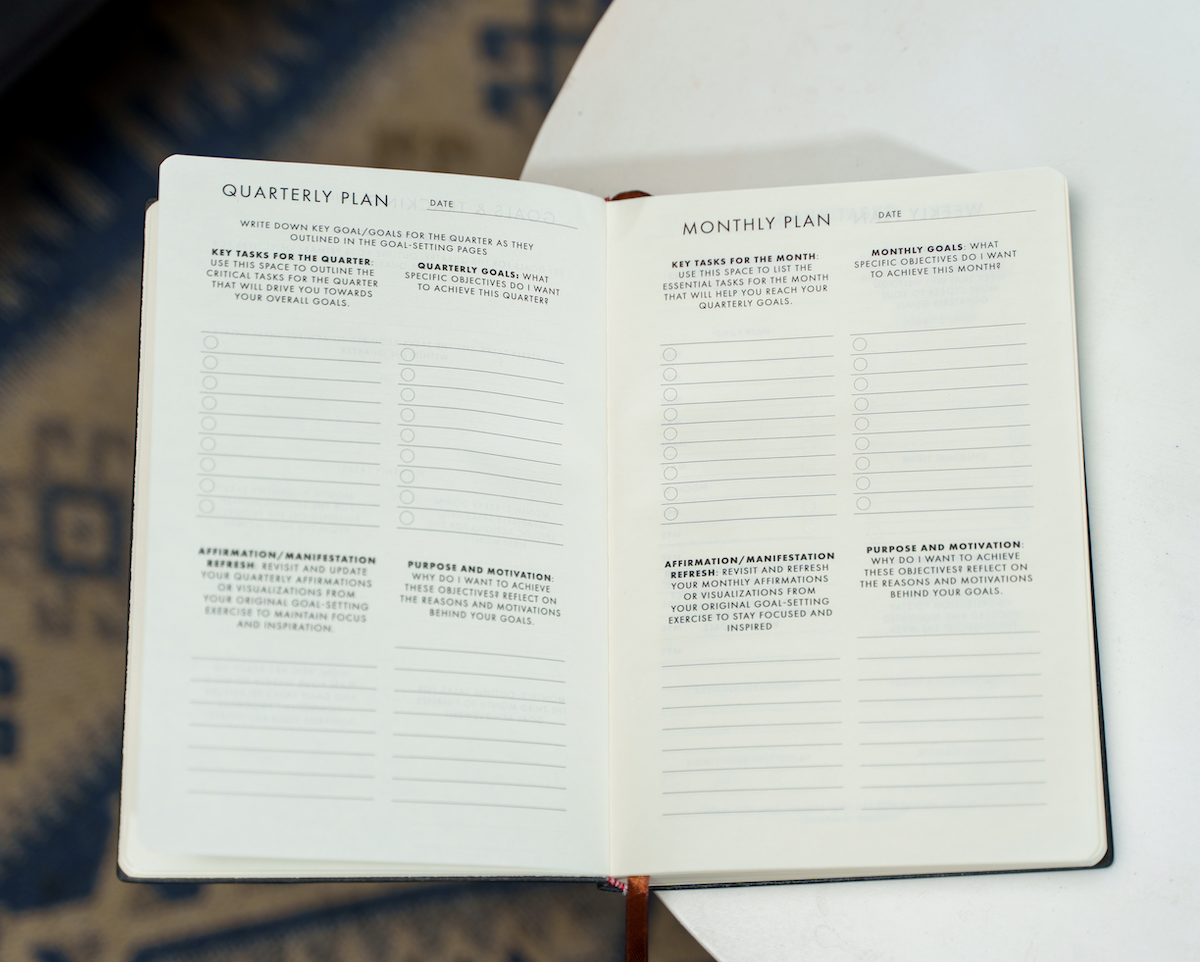 QUARTERLY PLAN
DATE
WRITE DOWN KEY GOAL/GOALS FOR THE QUARTER AS THEY
OUTLINED IN THE GOAL-SETTING PAGES
KEY TASKS FOR THE QUARTER:
USE THIS SPACE TO OUTLINE THE
CRITICAL TASKS FOR THE QUARTER
THAT WILL DRIVE YOU TOWARDS
YOUR OVERALL GOALS.
QUARTERLY GOALS: WHAT
SPECIFIC OBJECTIVES DO I WANT
TO ACHIEVE THIS QUARTER?
AFFIRMATION/MANIFESTATION
REFRESH: REVISIT AND UPDATE
YOUR QUARTERLY AFFIRMATIONS
OR VISUALIZATIONS FROM
YOUR ORIGINAL GOAL-SETTING
EXERCISE TO MAINTAIN FOCUS
AND INSPIRATION.
PURPOSE AND MOTIVATION:
WHY DO I WANT TO ACHIEVE
THESE OBJECTIVES? REFLECT ON
THE REASONS AND MOTIVATIONS
BEHIND YOUR GOALS.
MONTHLY PLAN
DATE
KEY TASKS FOR THE MONTH:
USE THIS SPACE TO LIST THE
ESSENTIAL TASKS FOR THE MONTH
THAT WILL HELP YOU REACH YOUR
QUARTERLY GOALS.
MONTHLY GOALS: WHAT
SPECIFIC OBJECTIVES DO I WANT
TO ACHIEVE THIS MONTH?
AFFIRMATION/MANIFESTATION
REFRESH: REVISIT AND REFRESH
YOUR MONTHLY AFFIRMATIONS
OR VISUALIZATIONS FROM
YOUR ORIGINAL GOAL-SETTING
EXERCISE TO STAY FOCUSED AND
INSPIRED
PURPOSE AND MOTIVATION:
WHY DO I WANT TO ACHIEVE
THESE OBJECTIVES? REFLECT ON
THE REASONS AND MOTIVATIONS
BEHIND YOUR GOALS.